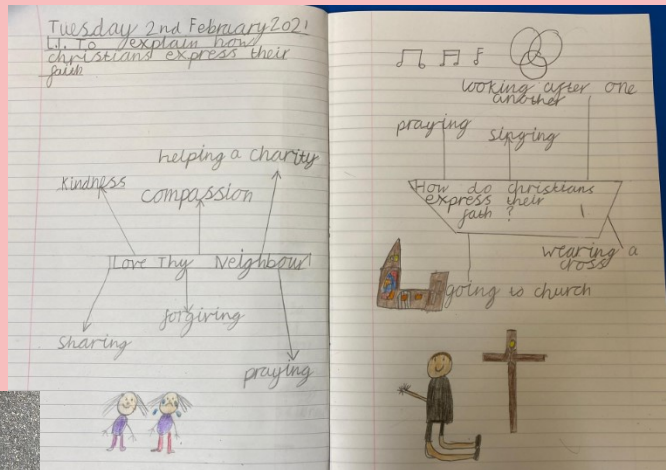 Tuesday 2nd February 2021
L.I. To explain how
christians express their
faith
helping a charity
kindness
compassion
Love Thy Neighbour
forgiving
sharing
praying
looking after one
another
praying
singing
How do christians
express their
faith ?
wearing a
cross
going to church